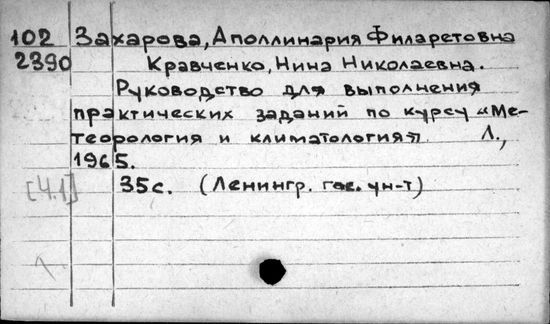 102 Захарова, Аполлинария Филаретовна
2390 Кравченко, Нина Николаевна.
Руководство для выполнения
практических заданий по курсу "Ме-
теорология и климатология". Л.,
1965.
[Ч.1] 35с. (Ленингр. гос. ун-т)